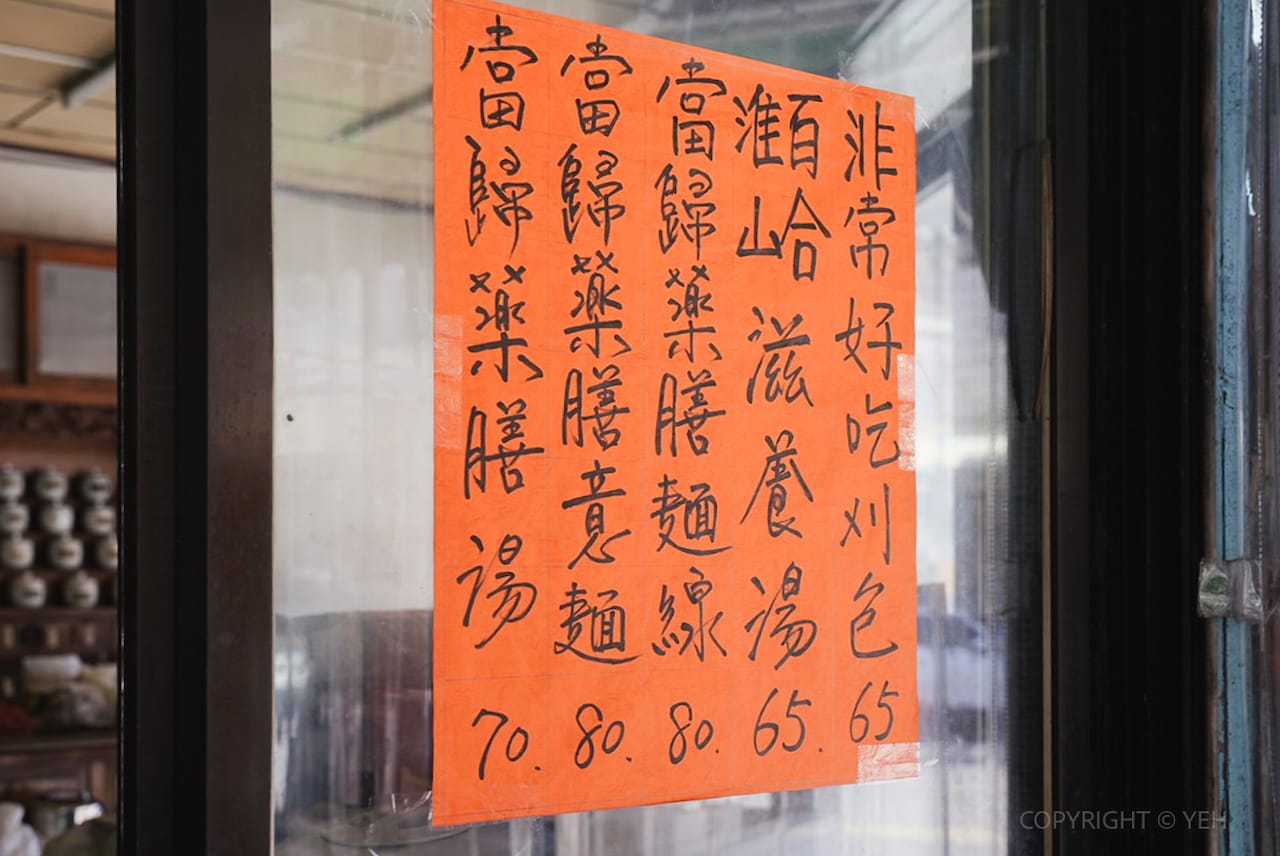 非常好吃刈包 65
百合淮山滋養湯 65.
當歸薬膳麵線 80.
當歸薬膳意麵 80.
當歸薬膳湯 70.
COPYRIGHT © YEH